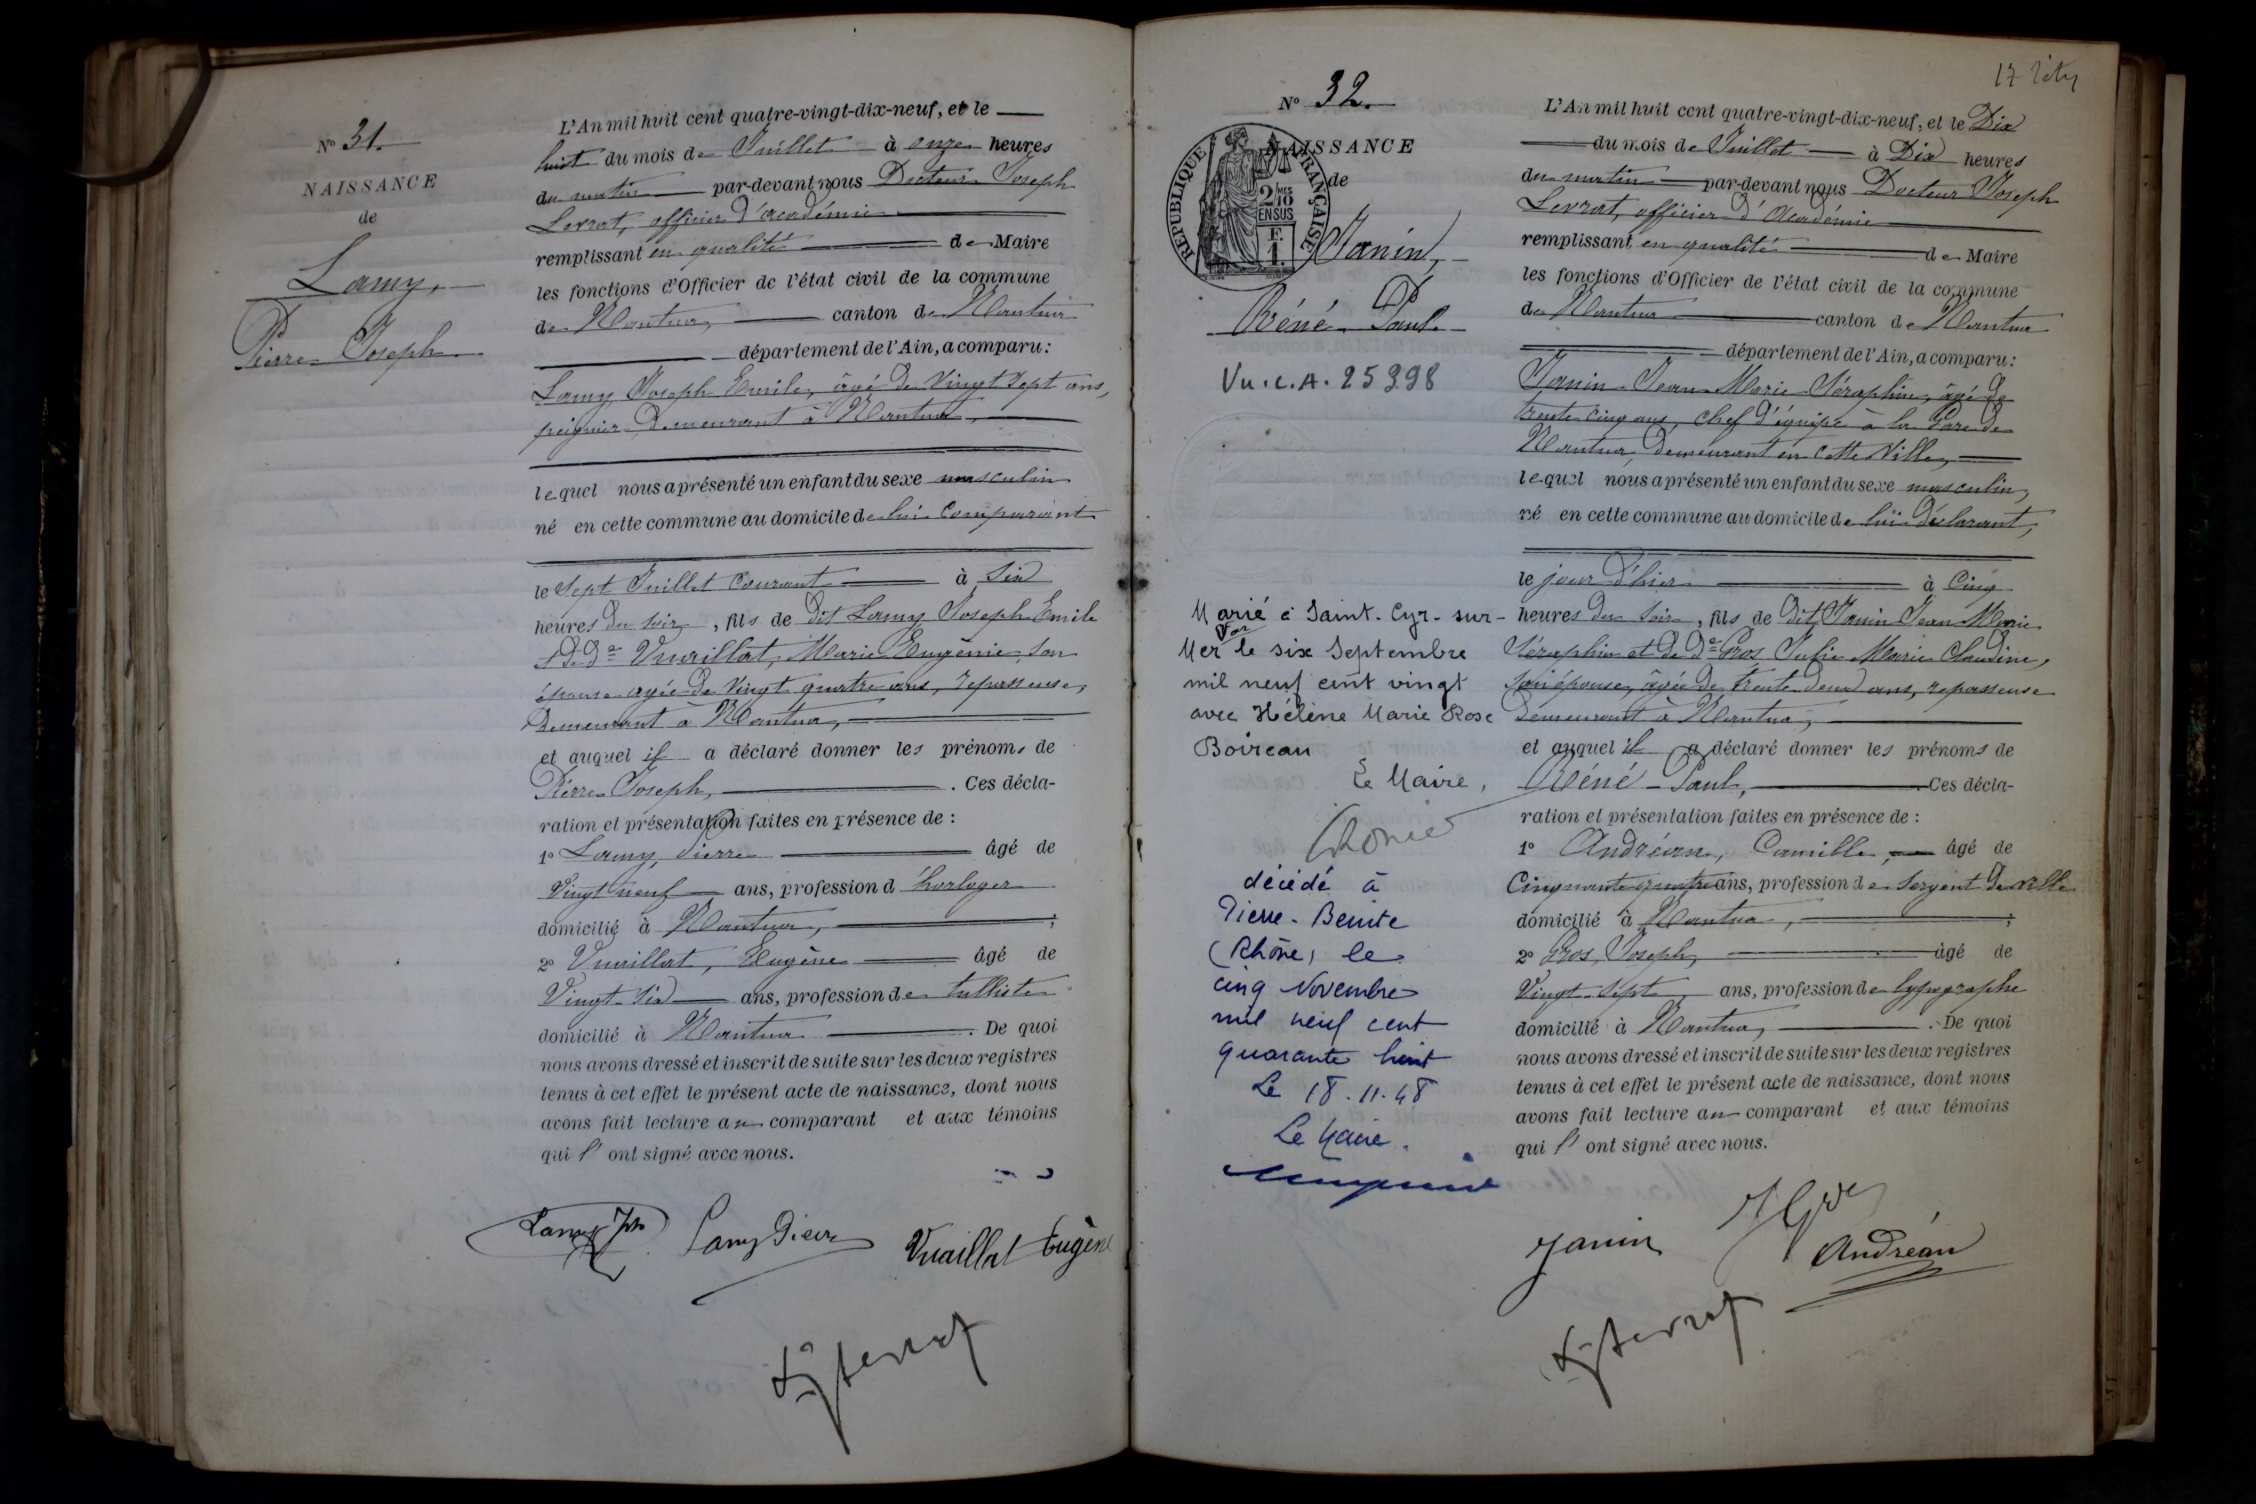 N° 31.
NAISSANCE
de
Lamy,
Pierre Joseph
L'An mil huit cent quatre-vingt-dix-neuf, et le
huit du mois de Juillet à onze heures
du matin par-devant nous Docteur Joseph
Levrat, officier d'académie
remplissant en qualité de Maire
les fonctions d'Officier de l'état civil de la commune
de Nantua, canton de Nantua
département de l'Ain, a comparu :
Lamy Joseph Emile, âgé de vingt sept ans,
peignier demeurant à Nantua,
lequel nous a présenté un enfant du sexe masculin
né en cette commune au domicile de lui comparant
le sept Juillet courant à six
heures du soir, fils de dit Lamy Joseph Emile
et de De Vuaillat, Marie Eugénie, son
épouse agée de vingt quatre ans, repasseuse,
demeurant à Nantua,
et auquel il a déclaré donner les prénoms de
Pierre Joseph, . Ces décla-
ration et présentation faites en présence de :
1° Lamy, Pierre âgé de
vingt neuf ans, profession d'horloger
domicilié à Nantua, ;
2° Vuaillat, Eugène âgé de
vingt-six ans, profession de tulliste
domicilié à Nantua . De quoi
nous avons dressé et inscrit de suite sur les deux registres
tenus à cet effet le présent acte de naissance, dont nous
avons fait lecture au comparant et aux témoins
qui l' ont signé avec nous.
Lamy Jph Lamy Pierre Vuaillat Eugène
N° 32.
NAISSANCE
de
RÉPUBLIQUE FRANÇAISE
2/10 MES
EN SUS
Janin,
Réné Paul
Vu. C. A. 25998
Marié à Saint-Cyr-sur-
Mer Var le six Septembre
mil neuf cent vingt
avec Hélène Marie Rose
Boireau
Le Maire,
décédé à
Pierre-Bénite
(Rhône) le
cinq Novembre
mil neuf cent
quarante huit
Le 18.11.48
Le Maire.
L'An mil huit cent quatre-vingt-dix-neuf, et le Dix
du mois de Juillet à Dix heures
du matin par-devant nous Docteur Joseph
Levrat, officier d'Académie
remplissant en qualité de Maire
les fonctions d'Officier de l'état civil de la commune
de Nantua canton de Nantua
département de l'Ain, a comparu :
Janin Jean Marie Séraphin, âgé de
trente cinq ans, chef d'équipe à la Gare de
Nantua, demeurant en cette Ville,
lequel nous a présenté un enfant du sexe masculin,
né en cette commune au domicile de lui déclarant,
le jour d'hier à Cinq
heures du soir, fils de dit Janin Jean Marie
Séraphin et de De Gros Julie Marie Claudine,
son épouse, âgée de trente deux ans, repasseuse
demeurant à Nantua,
et auquel il a déclaré donner les prénoms de
Réné Paul, . Ces décla-
ration et présentation faites en présence de :
1° Andréan, Camille, âgé de
Cinquante quatre ans, profession de sergent de ville
domicilié à Nantua, ;
2° Gros, Joseph, âgé de
Vingt-sept ans, profession de typographe
domicilié à Nantua, . De quoi
nous avons dressé et inscrit de suite sur les deux registres
tenus à cet effet le présent acte de naissance, dont nous
avons fait lecture au comparant et aux témoins
qui l' ont signé avec nous.
Janin
Andréan